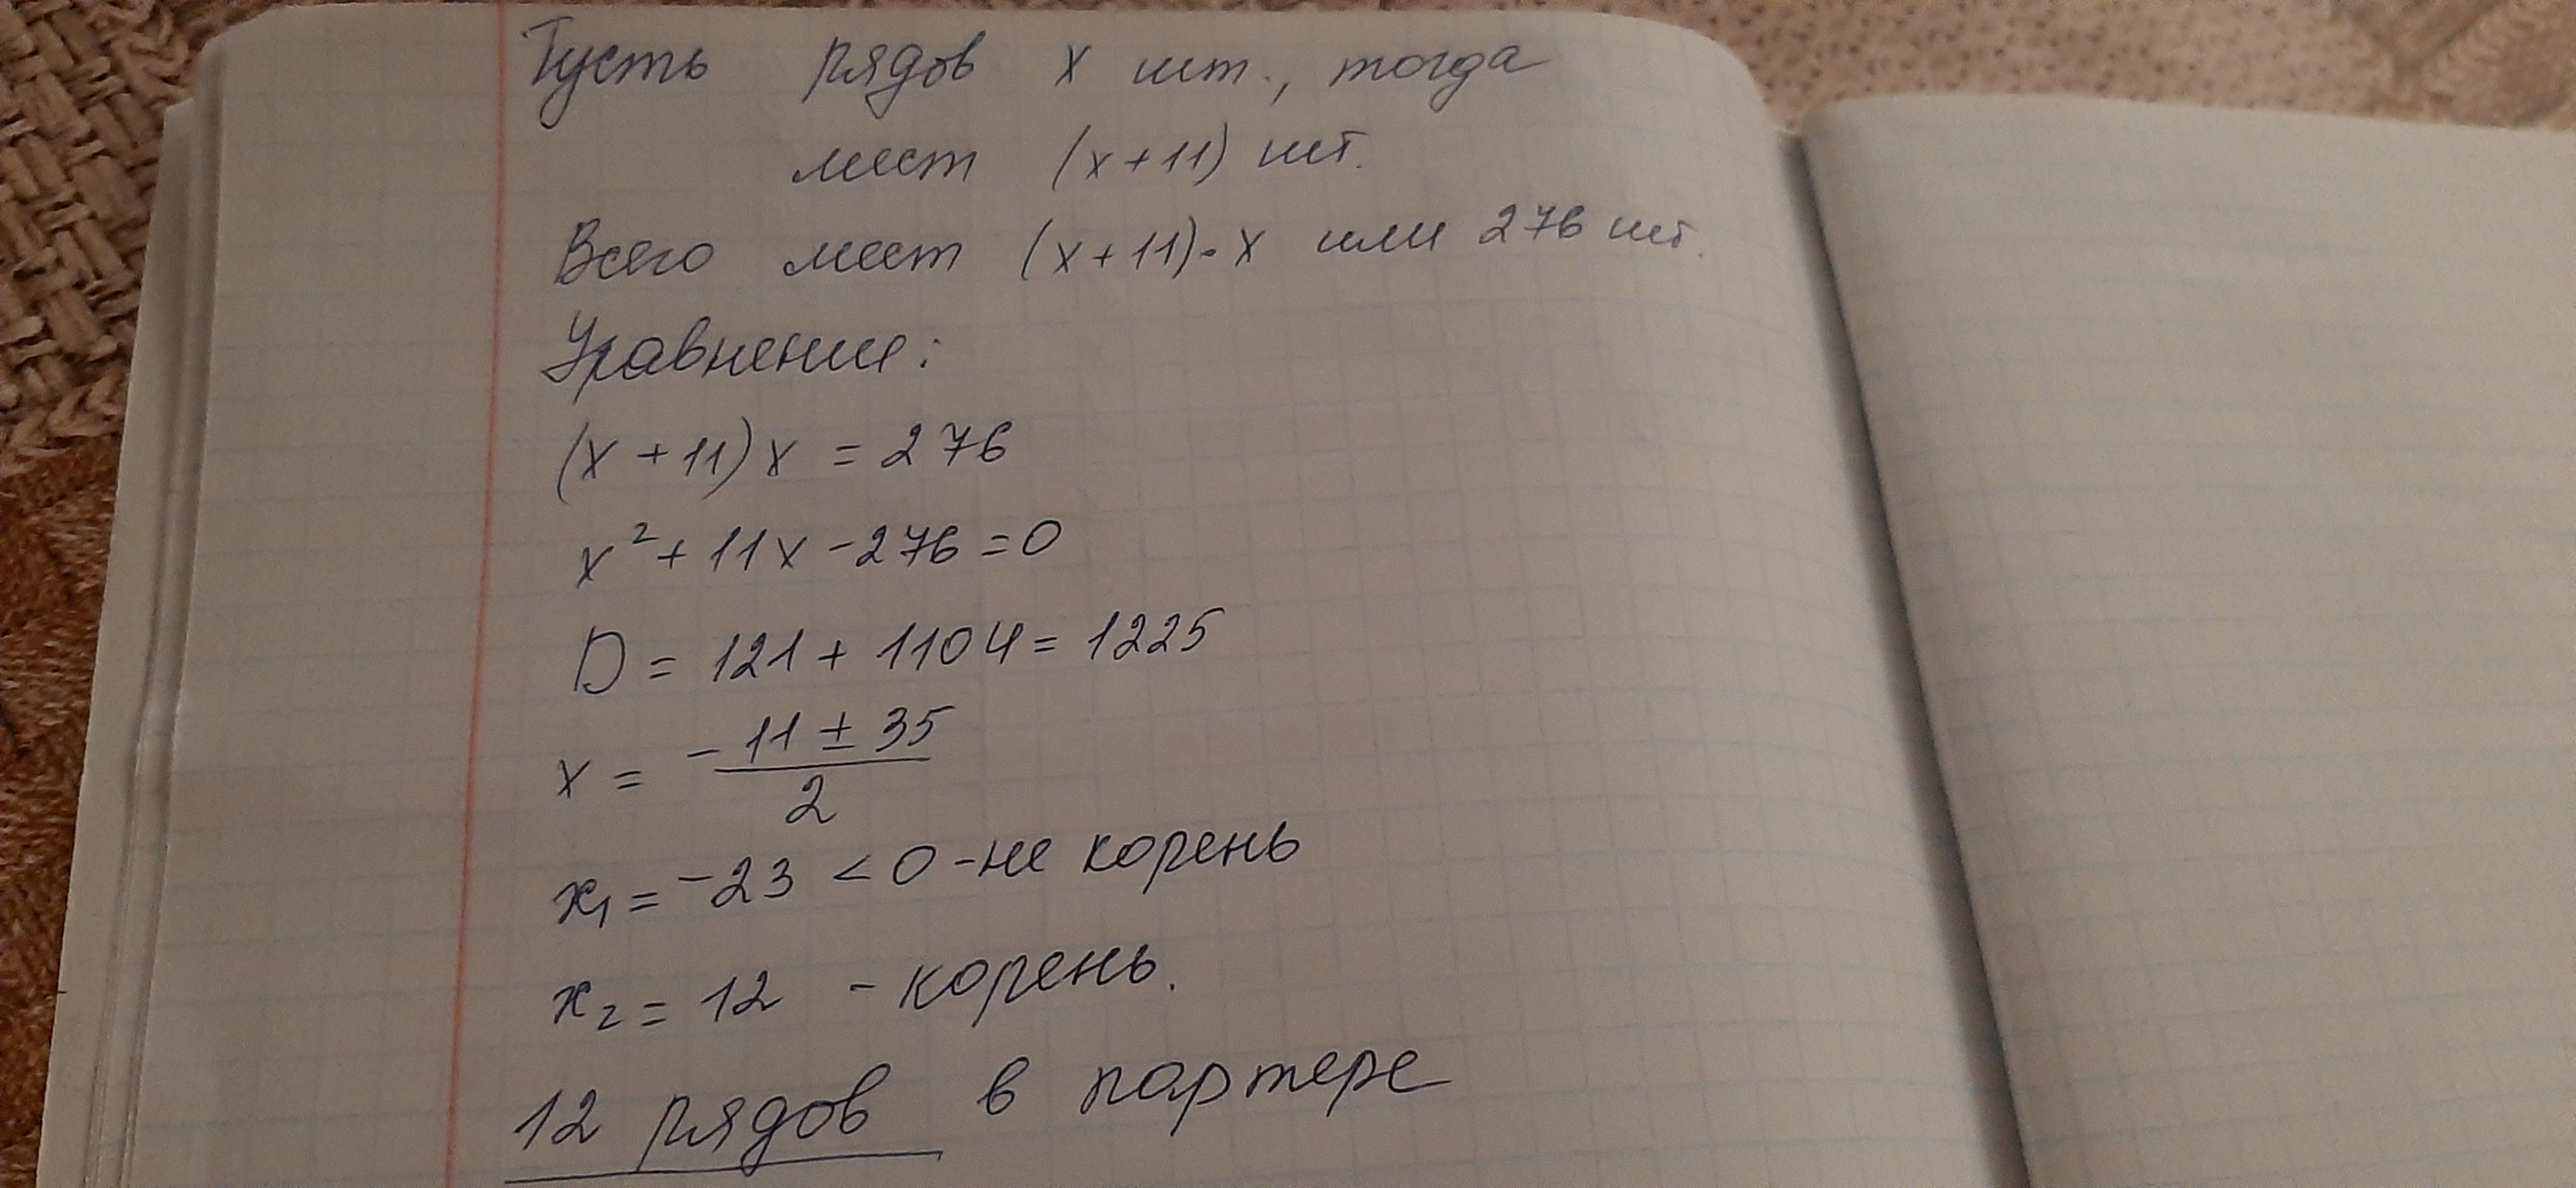 Пусть рядов x шт., тогда
мест (x+11) шт.
Всего мест (x+11)·x или 276 шт.
Уравнение:
(x+11)x = 276
x²+11x-276=0
D = 121+1104=1225
x = (-11±35)/2
x₁=-23<0-не корень
x₂=12 -корень.
12 рядов в партере